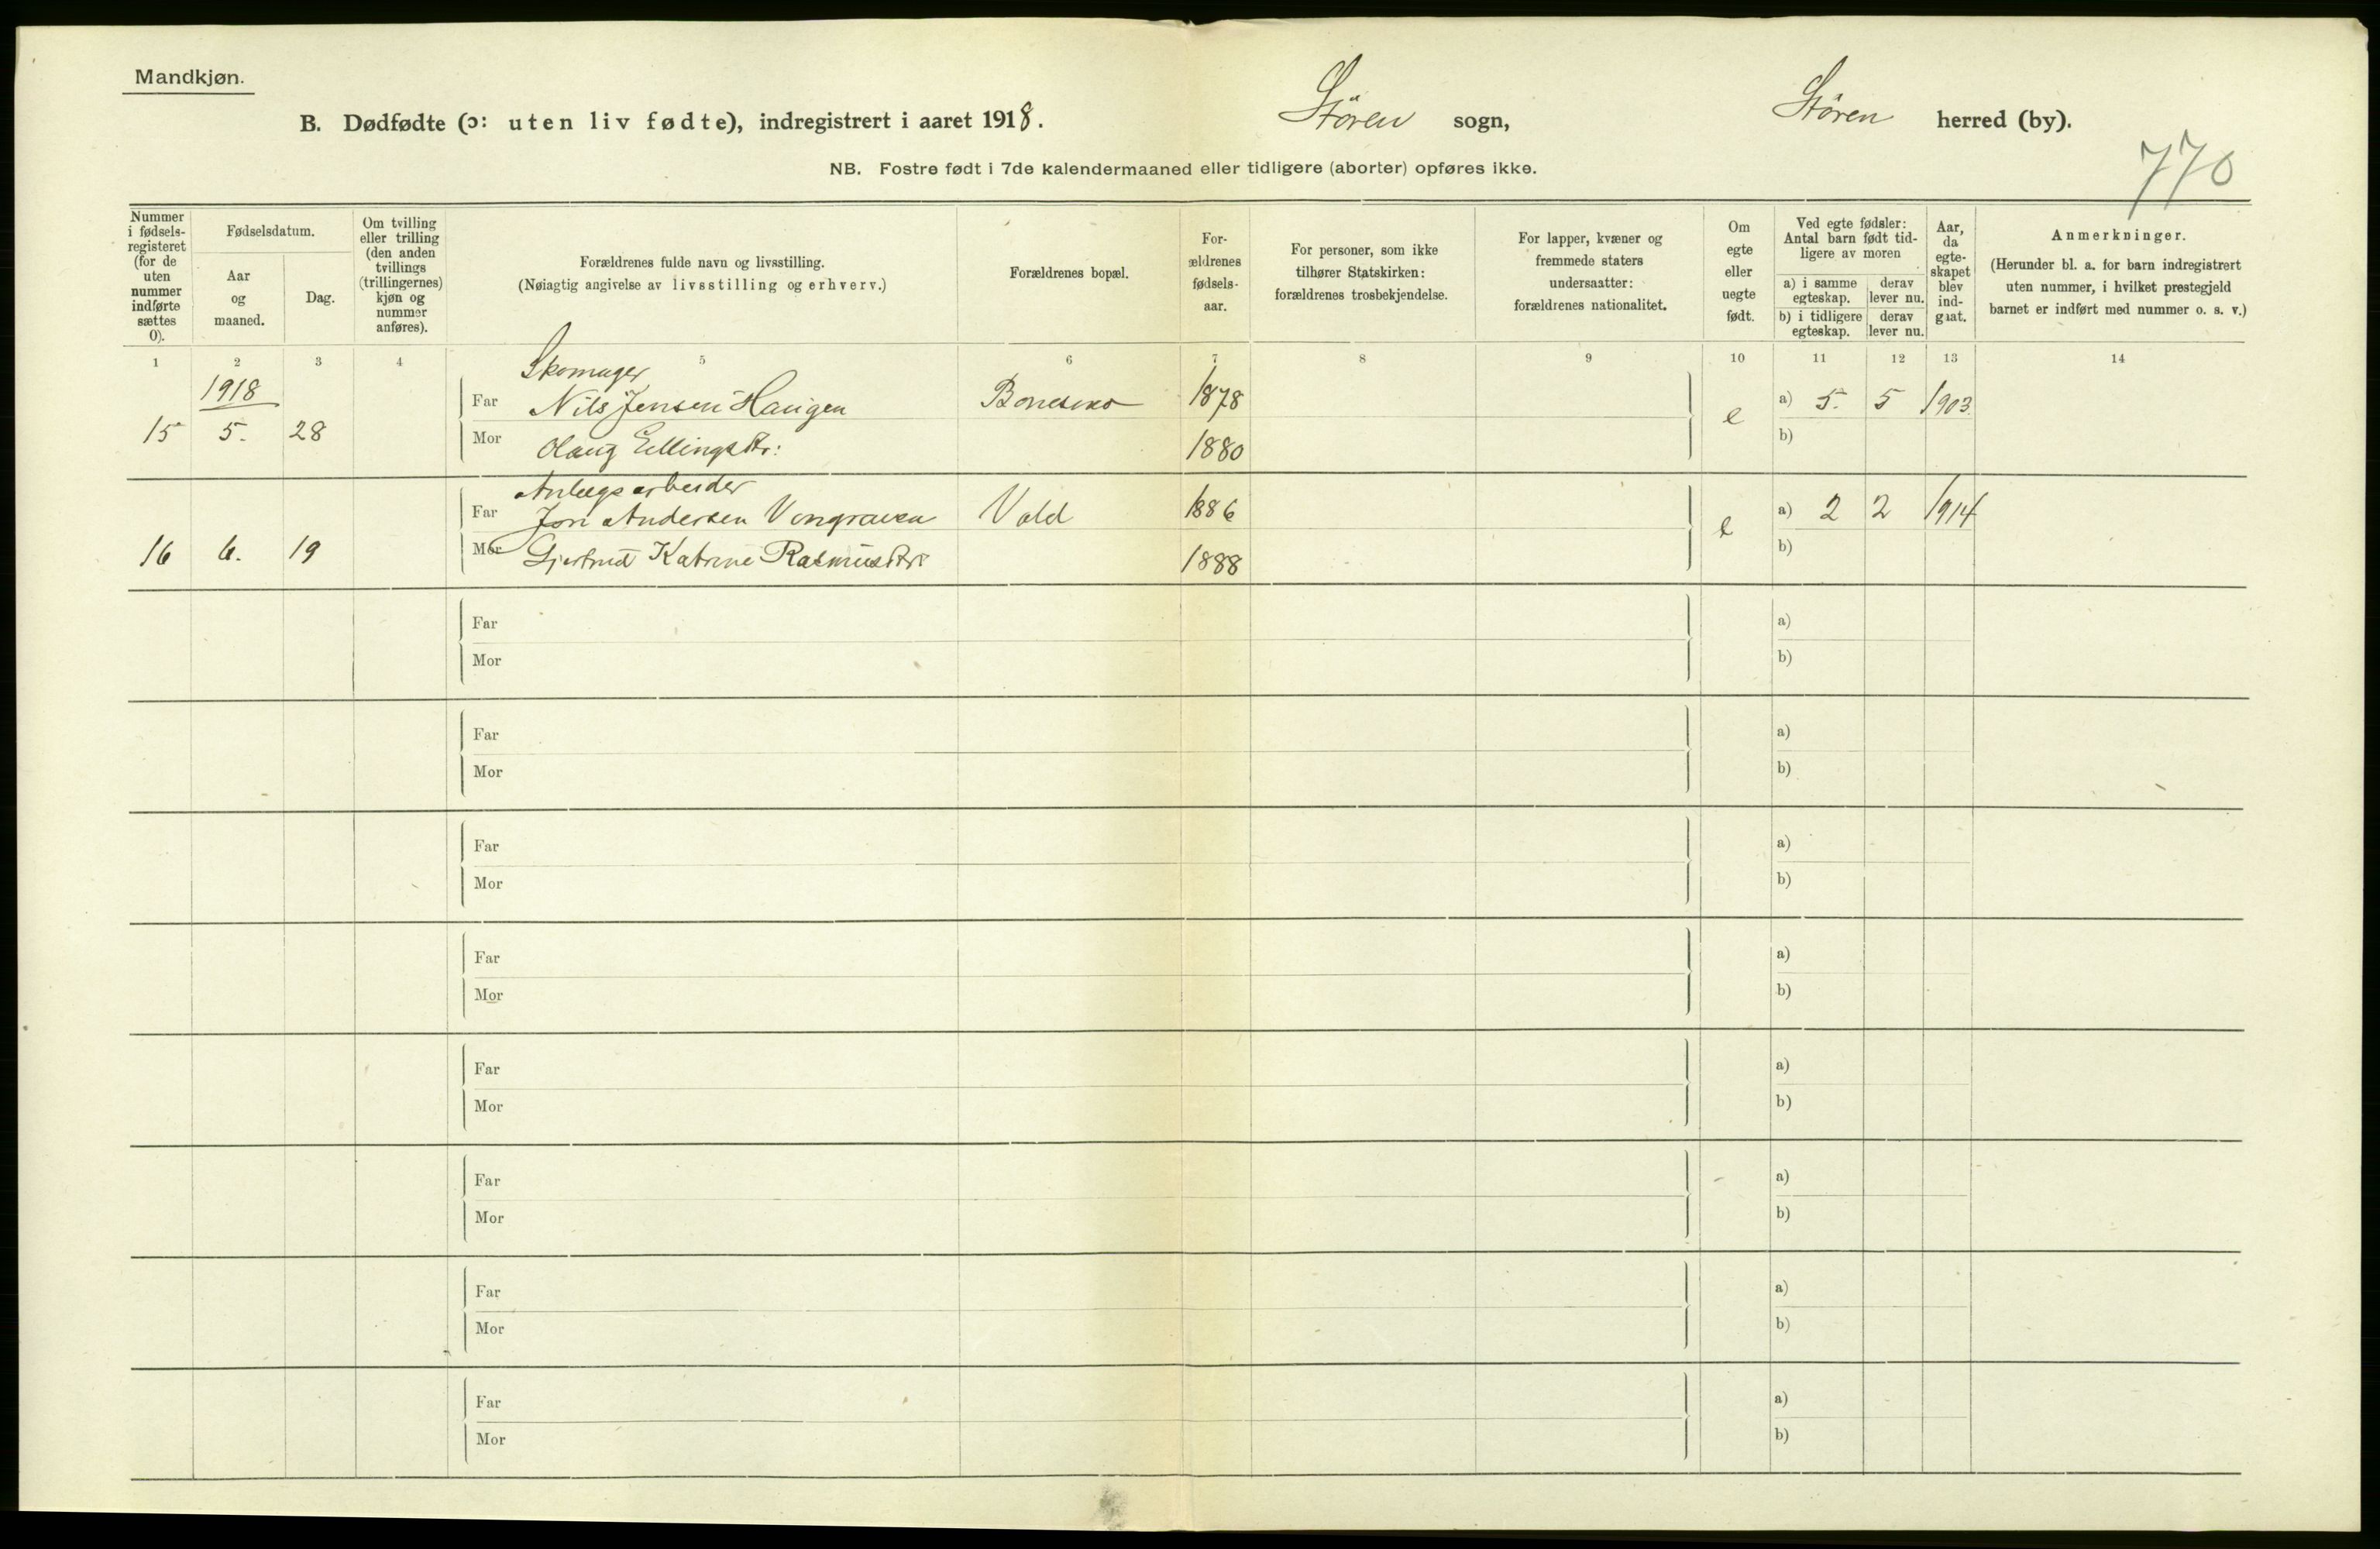 Mandkjøn.
B. Dødfødte (ɔ: uten liv fødte), indregistrert i aaret 1918. Støren sogn, Støren herred (by).
NB. Fostre født i 7de kalendermaaned eller tidligere (aborter) opføres ikke.
770
Nummer i fødsels-registeret (for de uten nummer indførte sættes 0).
Fødselsdatum.
Aar og maaned.
Dag.
Om tvilling eller trilling (den anden tvillings (trillingernes) kjøn og nummer anføres).
Forældrenes fulde navn og livsstilling.
(Nøiagtig angivelse av livsstilling og erhverv.)
Forældrenes bopæl.
For-ældrenes fødsels-aar.
For personer, som ikke tilhører Statskirken: forældrenes trosbekjendelse.
For lapper, kvæner og fremmede staters undersaatter: forældrenes nationalitet.
Om egte eller uegte født.
Ved egte fødsler: Antal barn født tid-ligere av moren
a) i samme egteskap.
derav lever nu.
b) i tidligere egteskap.
derav lever nu.
Aar, da egte-skapet blev ind-gaat.
Anmerkninger.
(Herunder bl. a. for barn indregistrert uten nummer, i hvilket prestegjeld barnet er indført med nummer o. s. v.)
1 2 3 4 5 6 7 8 9 10 11 12 13 14
1918
Skomager
Far Nils Jensen Haugen 1878 a) 5. 5 1903
15 5. 28 e
Mor Olaug Ellingsdtr: 1880 b)
Anlægsarbeider
Far Jon Andersen Vongraven Vold 1886 a) 2 2 1914
16 6. 19 e
Mor Gjertrud Katrine Rasmusdtr 1888 b)
Far a)
Mor b)
Far a)
Mor b)
Far a)
Mor b)
Far a)
Mor b)
Far a)
Mor b)
Far a)
Mor b)
Far a)
Mor b)
Far a)
Mor b)